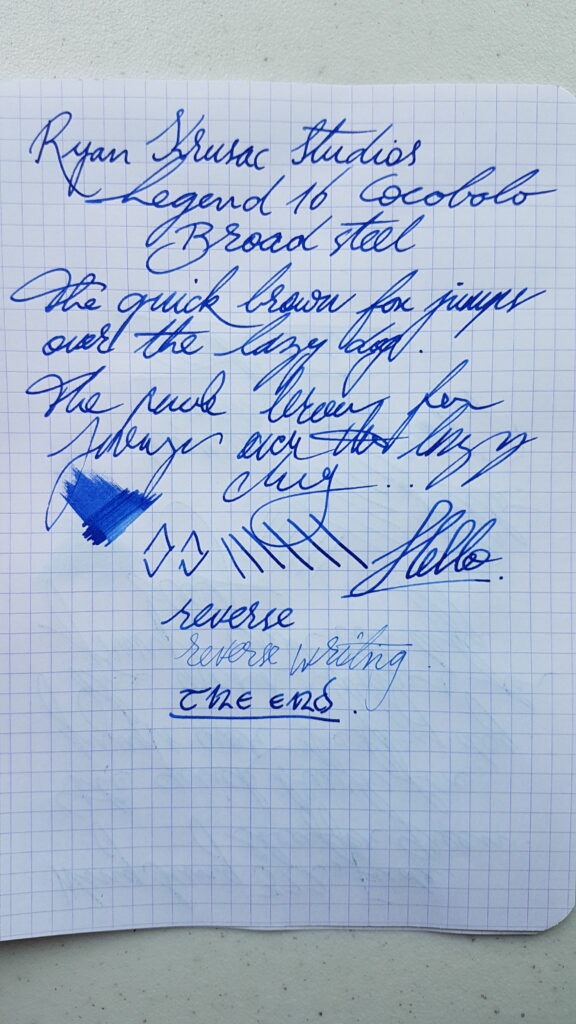 Ryan Krusac Studios
Legend 16 Cocobolo
Broad steel
The quick brown fox jumps
over the lazy dog.
The quick brown fox
jumps over the lazy
dog...
Hello.
reverse
reverse writing.
THE END.